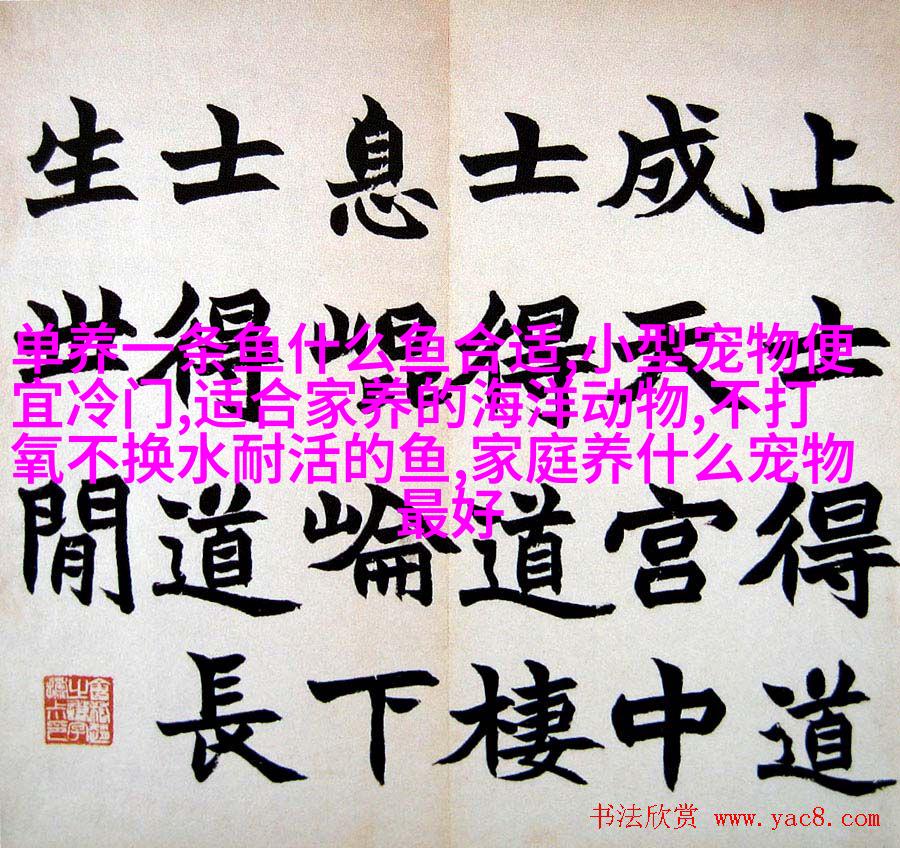 上士得道
成天宮中
士得道棲
息崐崘下
士得道長
生世閒
单养一条鱼什么鱼合适,小型宠物便
宜冷门,适合家养的海洋动物,不打
氧不换水耐活的鱼,家庭养什么宠物
最好
书法欣赏 www.yac8.com